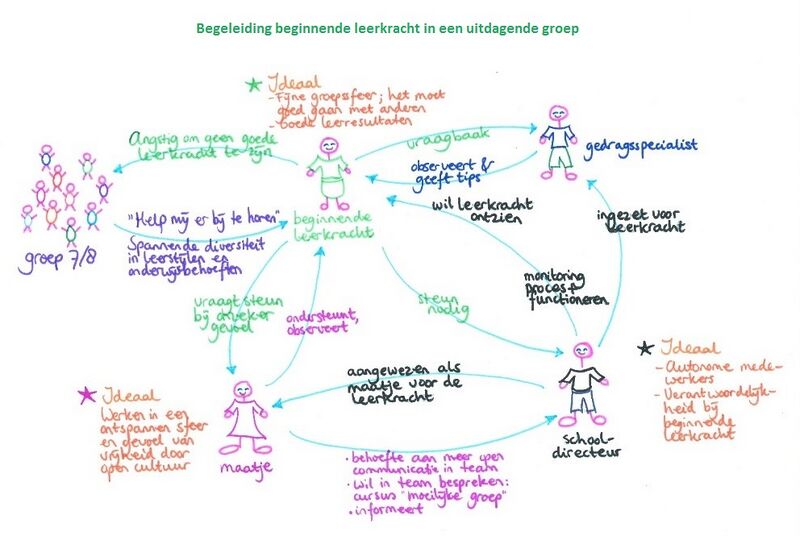 Begeleiding beginnende leerkracht in een uitdagende groep
Ideaal
- Fijne groepssfeer; het moet
goed gaan met anderen
- Goede leerresultaten
Angstig om geen goede
leerkracht te zijn
vraagbaak
gedragsspecialist
observeert &
geeft tips
wil leerkracht
ontzien
ingezet voor
leerkracht
"Help mij er bij te horen"
beginnende
leerkracht
groep 7/8
Spannende diversiteit
in leerstijlen en
onderwijsbehoeften
monitoring
proces &
functioneren
vraagt steun
bij onzeker
gevoel
ondersteunt,
observeert
steun
nodig
Ideaal
- Autonome mede-
werkers
- Verantwoordelijk-
heid bij
beginnende
leerkracht
aangewezen als
maatje voor de
leerkracht
Ideaal
Werken in een
ontspannen sfeer
en gevoel van
vrijheid door
open cultuur
maatje
school-
directeur
· behoefte aan meer open
communicatie in team
· wil in team bespreken:
cursus "moeilijke groep"
· informeert